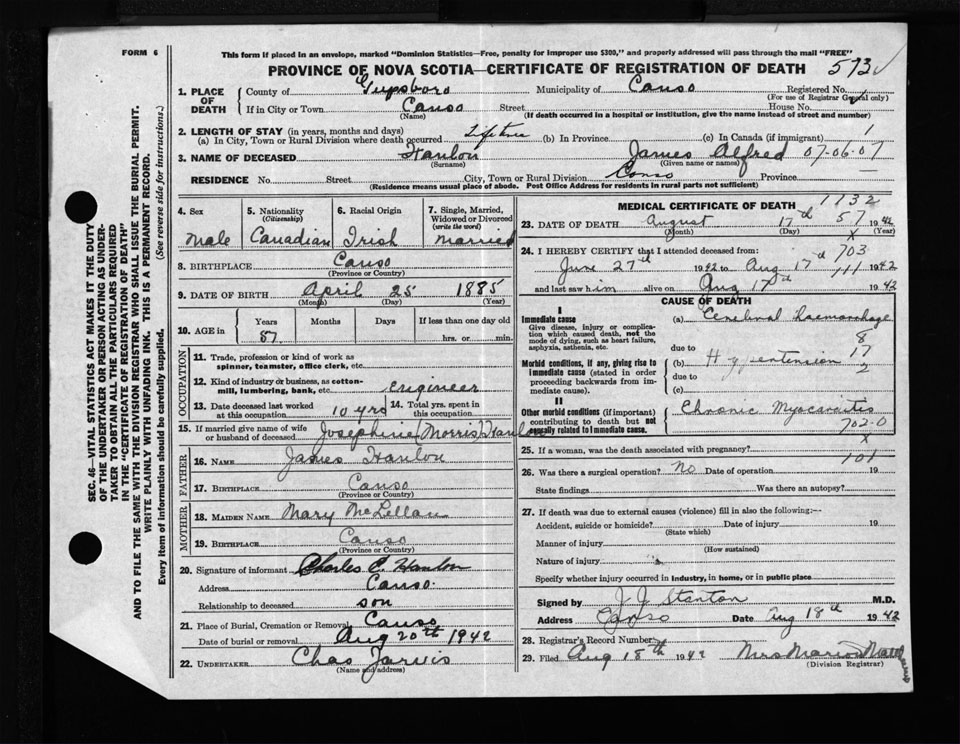 FORM 6
This form if placed in an envelope, marked "Dominion Statistics—Free, penalty for improper use $300," and properly addressed will pass through the mail "FREE"
PROVINCE OF NOVA SCOTIA—CERTIFICATE OF REGISTRATION OF DEATH 573
1. PLACE OF DEATH
County of Guysboro Municipality of Canso Registered No.
(For use of Registrar General only)
If in City or Town Canso Street House No.
(Name) (If death occurred in a hospital or institution, give the name instead of street and number)
2. LENGTH OF STAY (in years, months and days)
(a) In City, Town or Rural Division where death occurred Lifetime (b) In Province (c) In Canada (if immigrant) 1
3. NAME OF DECEASED Hanlon James Alfred 07-06-01
(Surname) (Given name or names)
RESIDENCE No. Street City, Town or Rural Division Canso Province
(Residence means usual place of abode. Post Office Address for residents in rural parts not sufficient)
4. Sex Male
5. Nationality (Citizenship) Canadian
6. Racial Origin Irish
7. Single, Married, Widowed or Divorced (write the word) Married
8. BIRTHPLACE Canso
(Province or Country)
9. DATE OF BIRTH April 25 1885
(Month) (Day) (Year)
10. AGE in Years Months Days If less than one day old
57 hrs. or min.
OCCUPATION
11. Trade, profession or kind of work as spinner, teamster, office clerk, etc.
12. Kind of industry or business, as cotton-mill, lumbering, bank, etc. engineer
13. Date deceased last worked at this occupation 10 yrs
14. Total yrs. spent in this occupation
15. If married give name of wife or husband of deceased Josephine (Morris) Hanlon
FATHER
16. NAME James Hanlon
17. BIRTHPLACE Canso
(Province or Country)
MOTHER
18. MAIDEN NAME Mary McLellan
19. BIRTHPLACE Canso
(Province or Country)
20. Signature of informant Charles C. Hanlon
Address Canso.
Relationship to deceased son
21. Place of Burial, Cremation or Removal Canso
Date of burial or removal Aug 20th 1942
22. UNDERTAKER Chas Jarvis
(Name and address)
MEDICAL CERTIFICATE OF DEATH 1132
23. DATE OF DEATH August 17th 57 1942
(Month) (Day) x (Year)
24. I HEREBY CERTIFY that I attended deceased from: 703
June 27th 1942 to Aug 17th 111 1942
and last saw him alive on Aug 17th 1942
CAUSE OF DEATH
I
Immediate cause (a) Cerebral haemorrhage
Give disease, injury or complication which caused death, not the mode of dying, such as heart failure, asphyxia, asthenia, etc.
due to 8
17
Morbid conditions, if any, giving rise to immediate cause (stated in order proceeding backwards from immediate cause).
(b) Hypertension 2
due to
(c)
II
Other morbid conditions (if important) contributing to death but not causally related to immediate cause.
Chronic Myocarditis
702-0
25. If a woman, was the death associated with pregnancy? x
101
26. Was there a surgical operation? No Date of operation 19
State findings Was there an autopsy?
27. If death was due to external causes (violence) fill in also the following:—
Accident, suicide or homicide? Date of injury 19
(State which)
Manner of injury
(How sustained)
Nature of injury
Specify whether injury occurred in industry, in home, or in public place
Signed by J. J. Stanton M.D.
Address Canso Date Aug 18th 1942
28. Registrar's Record Number
29. Filed Aug 18th 1942 Mrs Marion
(Division Registrar)
SEC. 46—VITAL STATISTICS ACT MAKES IT THE DUTY
OF THE UNDERTAKER OR PERSON ACTING AS UNDER-
TAKER TO OBTAIN ALL THE PARTICULARS REQUIRED
IN THE "CERTIFICATE OF REGISTRATION OF DEATH"
AND TO FILE THE SAME WITH THE DIVISION REGISTRAR WHO SHALL ISSUE THE BURIAL PERMIT.
WRITE PLAINLY WITH UNFADING INK. THIS IS A PERMANENT RECORD.
Every item of information should be carefully supplied. (See reverse side for instructions.)